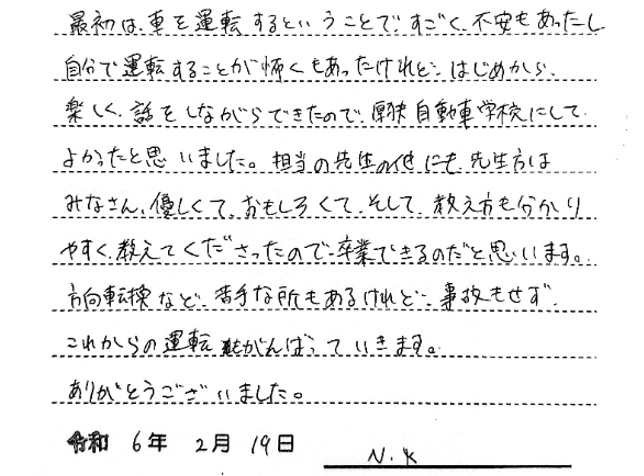 最初は、車を運転するということで、すごく、不安もあったし
自分で運転することが怖くもあったけれど、はじめから、
楽しく、話をしながらできたので、厚狭自動車学校にして
よかったと思いました。担当の先生の他にも、先生方は
みなさん、優しくて、おもしろくて、そして、教え方も分かり
やすく、教えてくださったので、卒業できるのだと思います。
方向転換など、苦手な所もあるけれど、事故もせず、
これからの運転もがんばっていきます。
ありがとうございました。
令和 6年 2月 19日
N.K